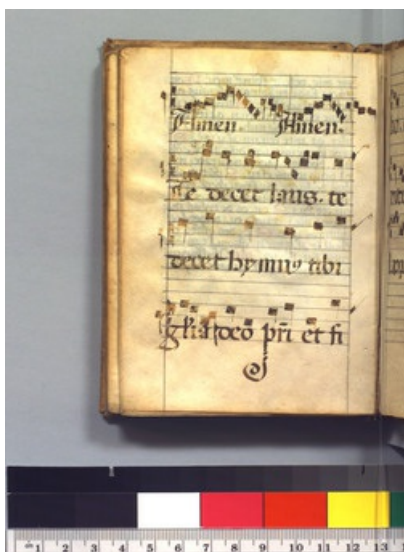 Amen. Amen.
Te decet laus. te
decet hymnꝰ tibi
gl̃ia deo pr̃i et fi
1 2 3 4 5 6 7 8 9 10 11 12 13